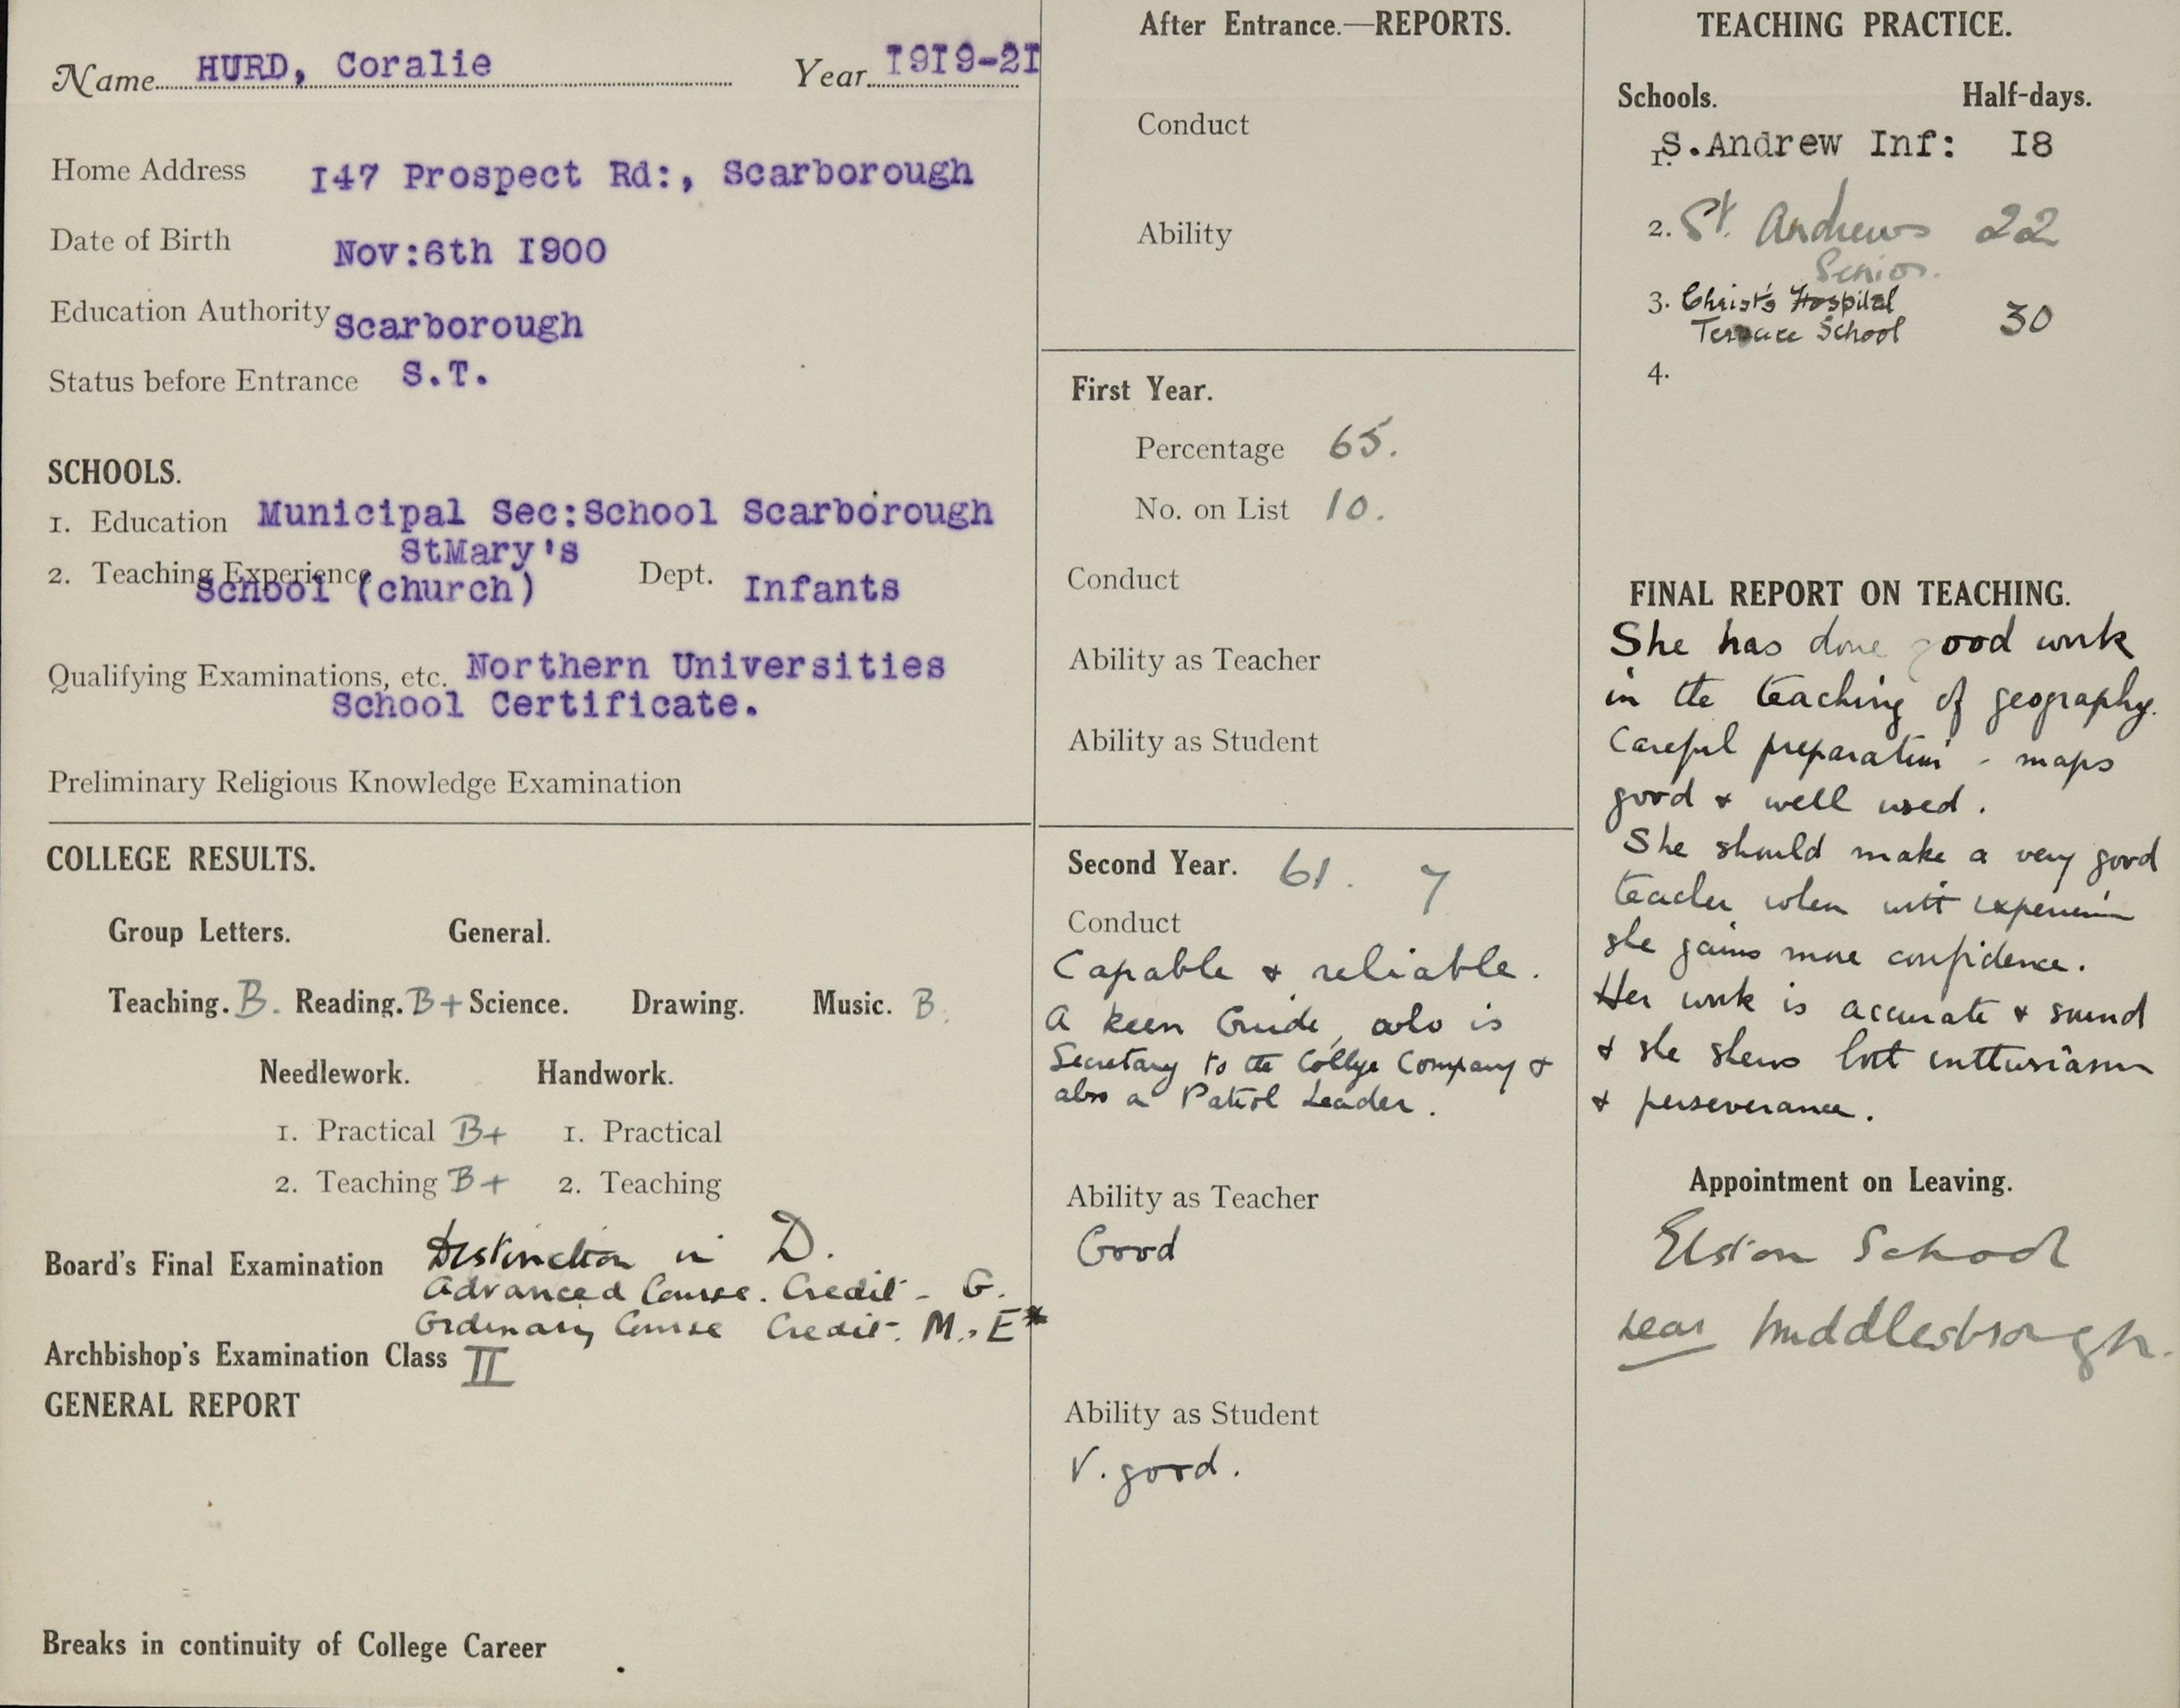 Name HURD, Coralie Year I9I9-2I
Home Address I47 Prospect Rd:, Scarborough
Date of Birth Nov:6th I900
Education Authority Scarborough
Status before Entrance S.T.
SCHOOLS.
1. Education Municipal Sec:School Scarborough
StMary's
2. Teaching Experience School (church) Dept. Infants
Qualifying Examinations, etc. Northern Universities
School Certificate.
Preliminary Religious Knowledge Examination
COLLEGE RESULTS.
Group Letters. General.
Teaching. B. Reading. B+ Science. Drawing. Music. B.
Needlework. Handwork.
1. Practical B+ 1. Practical
2. Teaching B+ 2. Teaching
Board's Final Examination Distinction in D.
Advanced Course. Credit - G.
Ordinary Course Credit - M., E*
Archbishop's Examination Class II
GENERAL REPORT
Breaks in continuity of College Career
After Entrance.—REPORTS.
Conduct
Ability
First Year.
Percentage 65.
No. on List 10.
Conduct
Ability as Teacher
Ability as Student
Second Year. 61. 7
Conduct
Capable & reliable.
A keen Guide, who is
Secretary to the College Company &
also a Patrol Leader.
Ability as Teacher
Good
Ability as Student
V. good.
TEACHING PRACTICE.
Schools. Half-days.
1. S.Andrew Inf: I8
2. St. Andrews 22
Senior.
3. Christ's Hospital
Terrace School 30
4.
FINAL REPORT ON TEACHING.
She has done good work
in the teaching of geography.
Careful preparation - maps
good & well used.
She should make a very good
teacher when with experience
she gains more confidence.
Her work is accurate & sound
& she shews both enthusiasm
& perseverance.
Appointment on Leaving.
Elston School
near Middlesbrough.